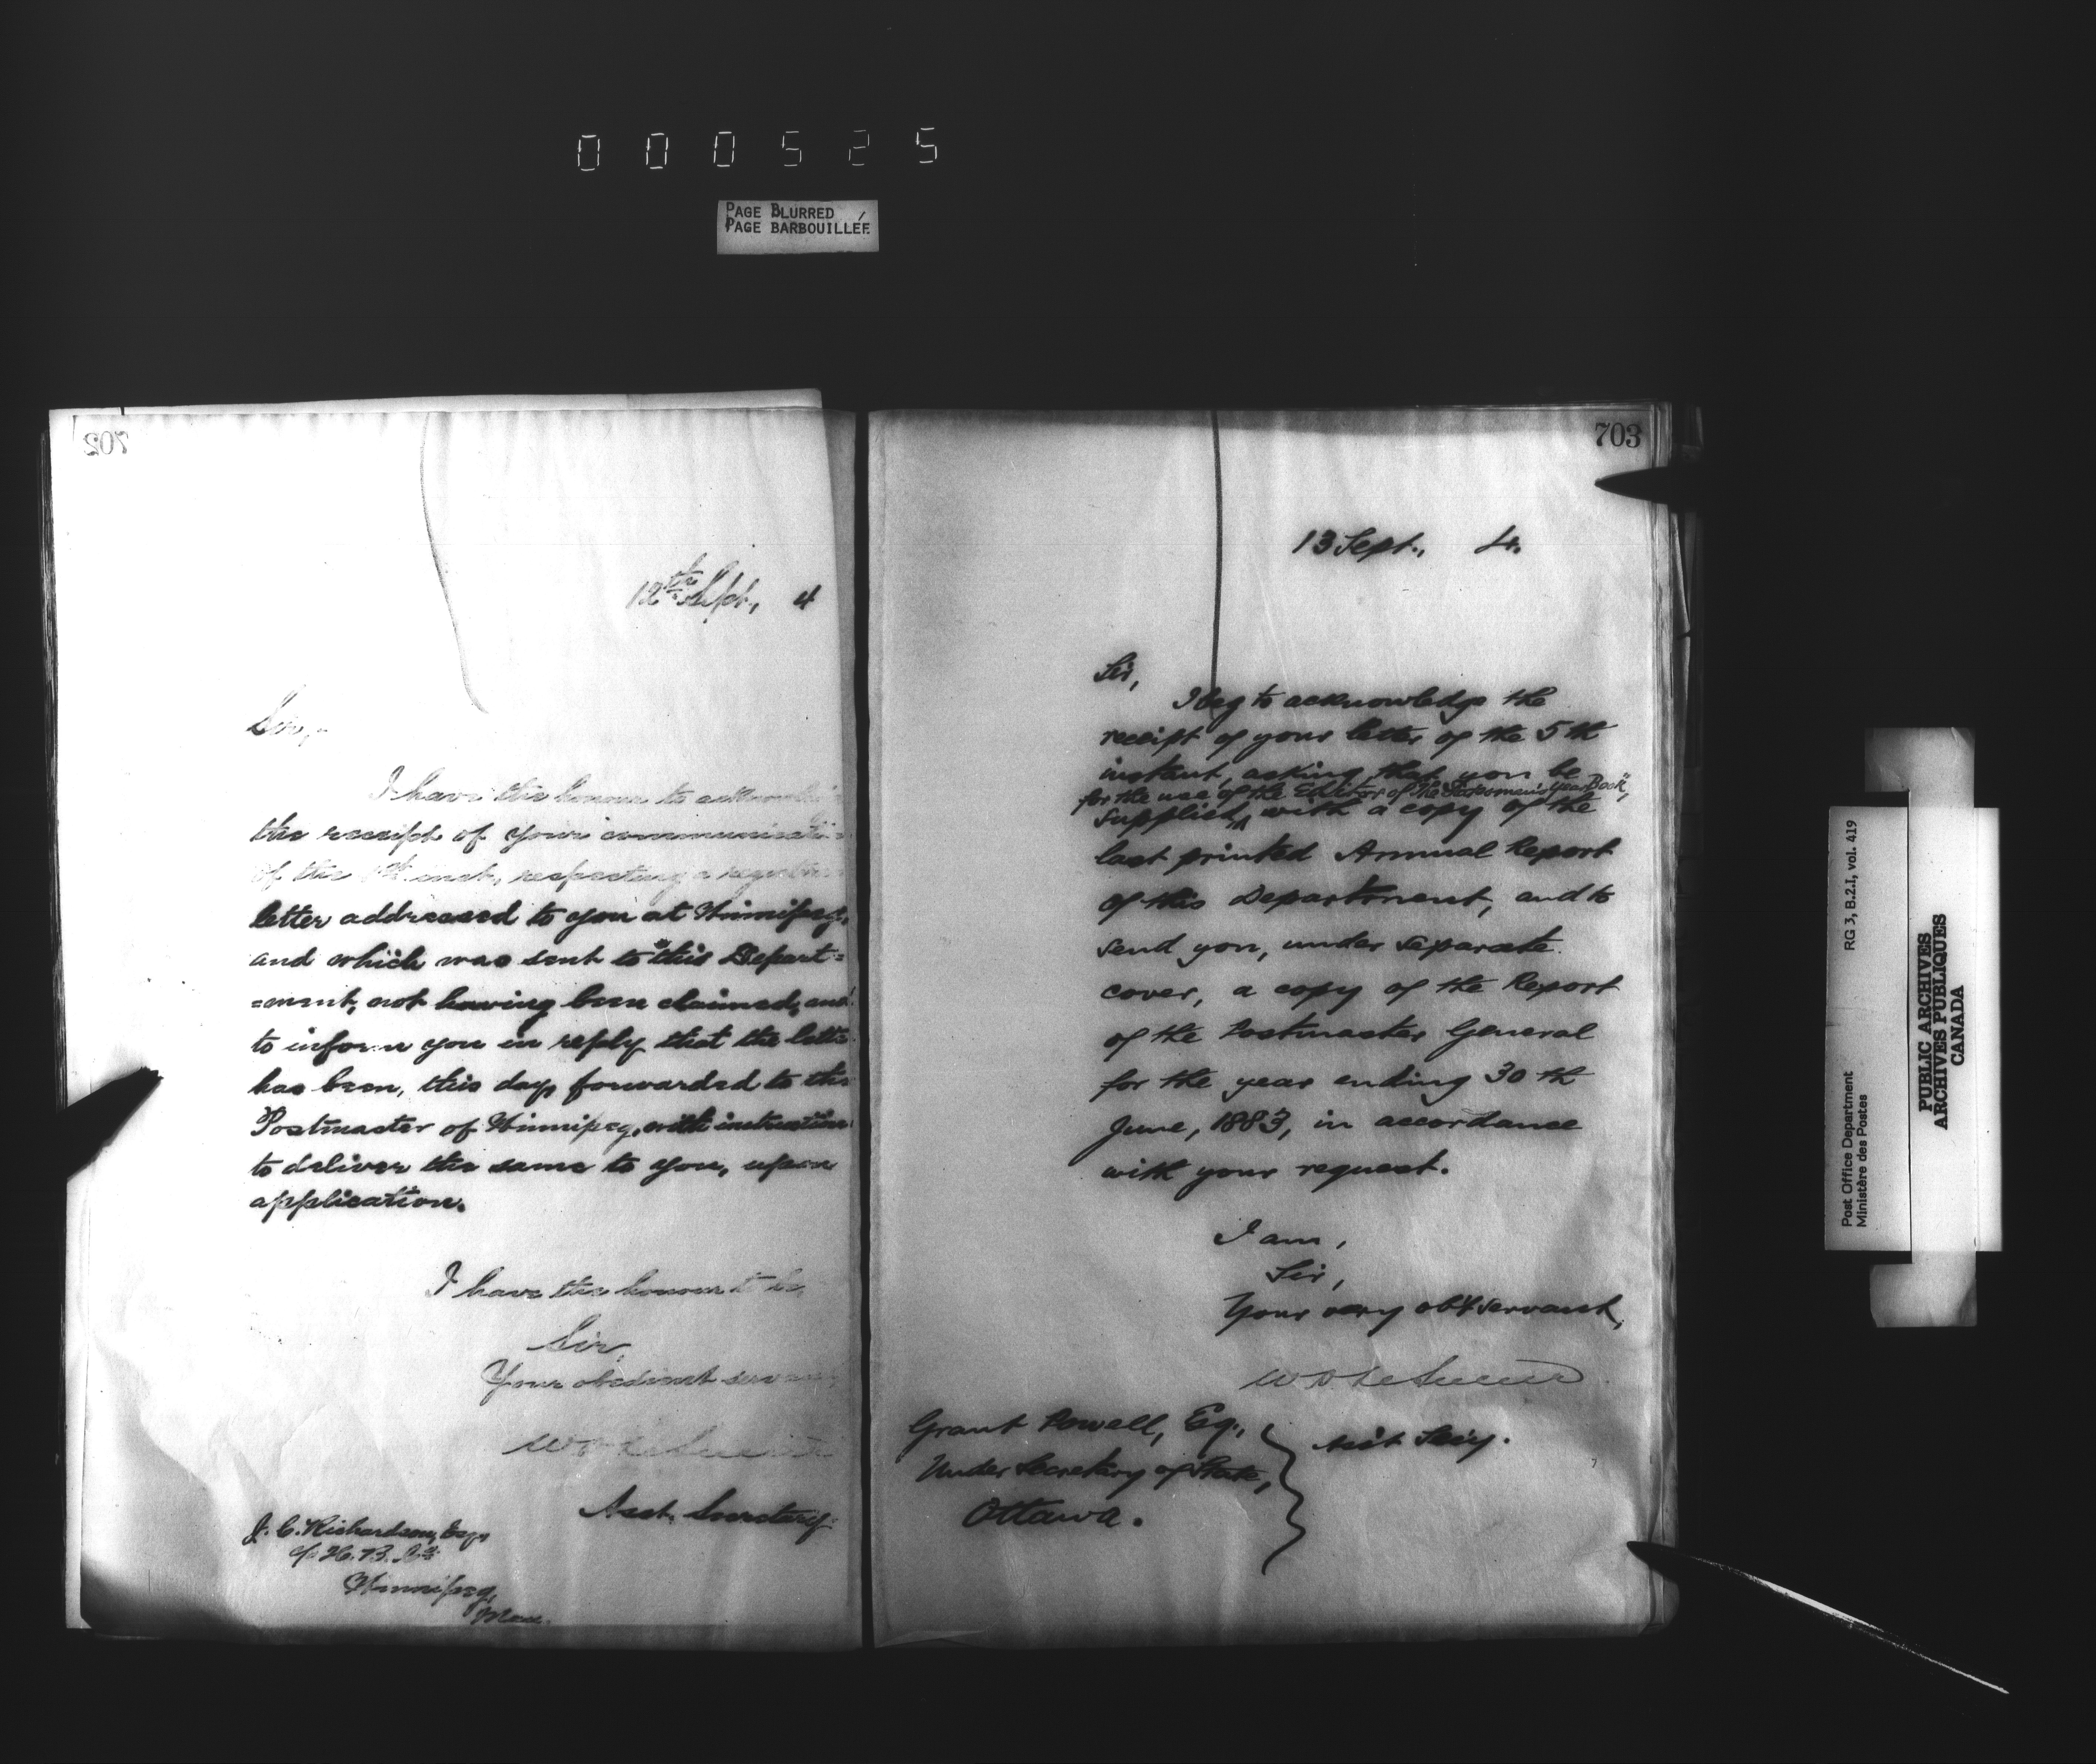 000525
PAGE BLURRED
PAGE BARBOUILLÉE
702
12th Sept., 4
Sir,
I have the honour to acknowledge
the receipt of your communication
of the inst., respecting a registered
letter addressed to you at Winnipeg,
and which was sent to this Depart=
=ment, not having been claimed, and
to inform you in reply that the letter
has been, this day forwarded to the
Postmaster of Winnipeg, with instructions
to deliver the same to you, upon
application.
I have the honour to be,
Sir,
Your obedient servant
W D LeSueur
Asst. Secretary
J. C. Richardson, Esqr
c/o H. B. Co
Winnipeg,
Man.
703
13 Sept., 4.
Sir,
I beg to acknowledge the
receipt of your letter of the 5th
instant, asking that you be
for the use of the Editor of "The Statesman's Year Book",
supplied, with a copy of the
last printed Annual Report
of this Department, and to
send you, under separate
cover, a copy of the Report
of the Postmaster General
for the year ending 30th
June, 1883, in accordance
with your request.
I am,
Sir,
Your very obt servant,
W D LeSueur
Asst Secy.
Grant Powell, Esq.,
Under Secretary of State,
Ottawa.
Post Office Department
Ministère des Postes
RG 3, B.2.I, vol. 419
PUBLIC ARCHIVES
ARCHIVES PUBLIQUES
CANADA